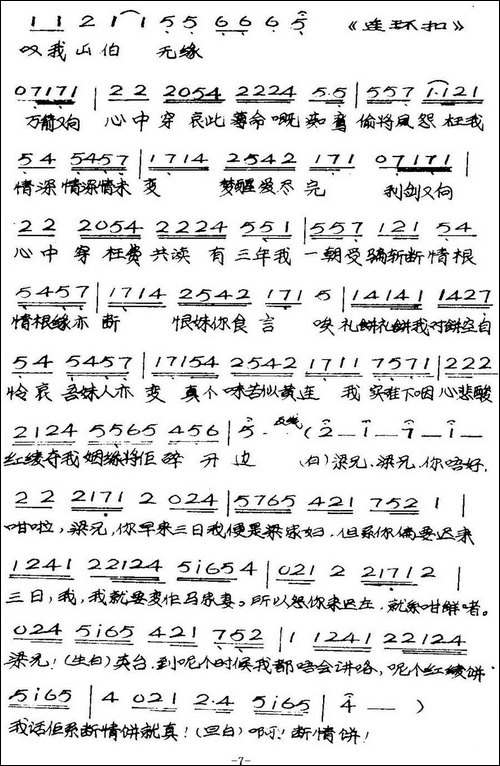 1 1 2 1 1 5 5 6 6 6 5 《连环扣》
叹我山伯 无缘
07171 | 2 2 2054 2224 5·5 | 557 1·121
万箭又向 心中穿 哀此薄命嘅 鸯 偷将凤怨枉我
54 5457 | 1714 2542 171 07171
情深情深情未变 梦醒爱尽完 利剑又向
2 2 2054 2224 551 | 557 121 54
心中穿 枉费共读有三年我 一朝受骗斩断情根
5457 | 1714 2542 171 5 | 14141 1427
情根缘亦断 恨妹你食言 唉礼饼礼饼我对饼空白
54 5457 | 17154 2542 1711 7571 | 222
怜哀吾妹人亦变 真个味苦似黄连 我实难下咽心悲酸
2124 5565 456 | 5· (2 — 1 — 7 — 1 —
红绫夺我姻缘将佢碎开边 (白)梁兄、梁兄、你唔好
2 2 2171 2 024 | 5765 421 752 1 |
咁啦,梁兄,你早来三日我便是梁家妇,但系你偏要迟来
1241 22124 5i65 4 | 021 2 21712 |
三日,我,我就要变作马家妻。所以怨你来迟左,就系咁解啫。
024 5i65 421 752 | 1 1241 22124
梁兄!(生白)英台,到呢个时候我都唔会讲咯,呢个红绫饼
5i65 | 4 021 2·4 5i65 | 4 — )
我话佢系断情饼就真!(旦白)啊!断情饼!
-7-